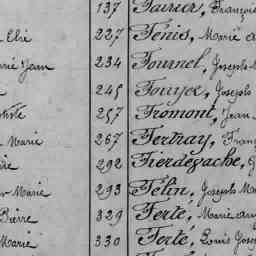 137 Favrier, François
Elie 227 Fénis, Marie a
rie Jean 234 Fournel, Joseph M
245 Fouyer, Joseph
tiste 257 Fromont, Jean
Marie 267 Fertray, Franç
292 Fierdegache,
Marie 293 Félin, Joseph M
Pierre 329 Ferté, Marie au
Marie 330 Ferté, Louis Jose